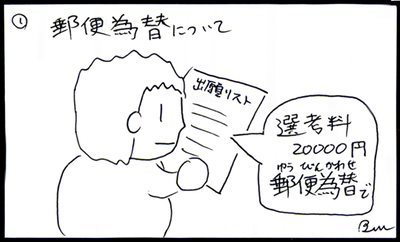 ①
郵便為替について
出願リスト
選考料
20000円
ゆうびんかわせ
郵便為替で